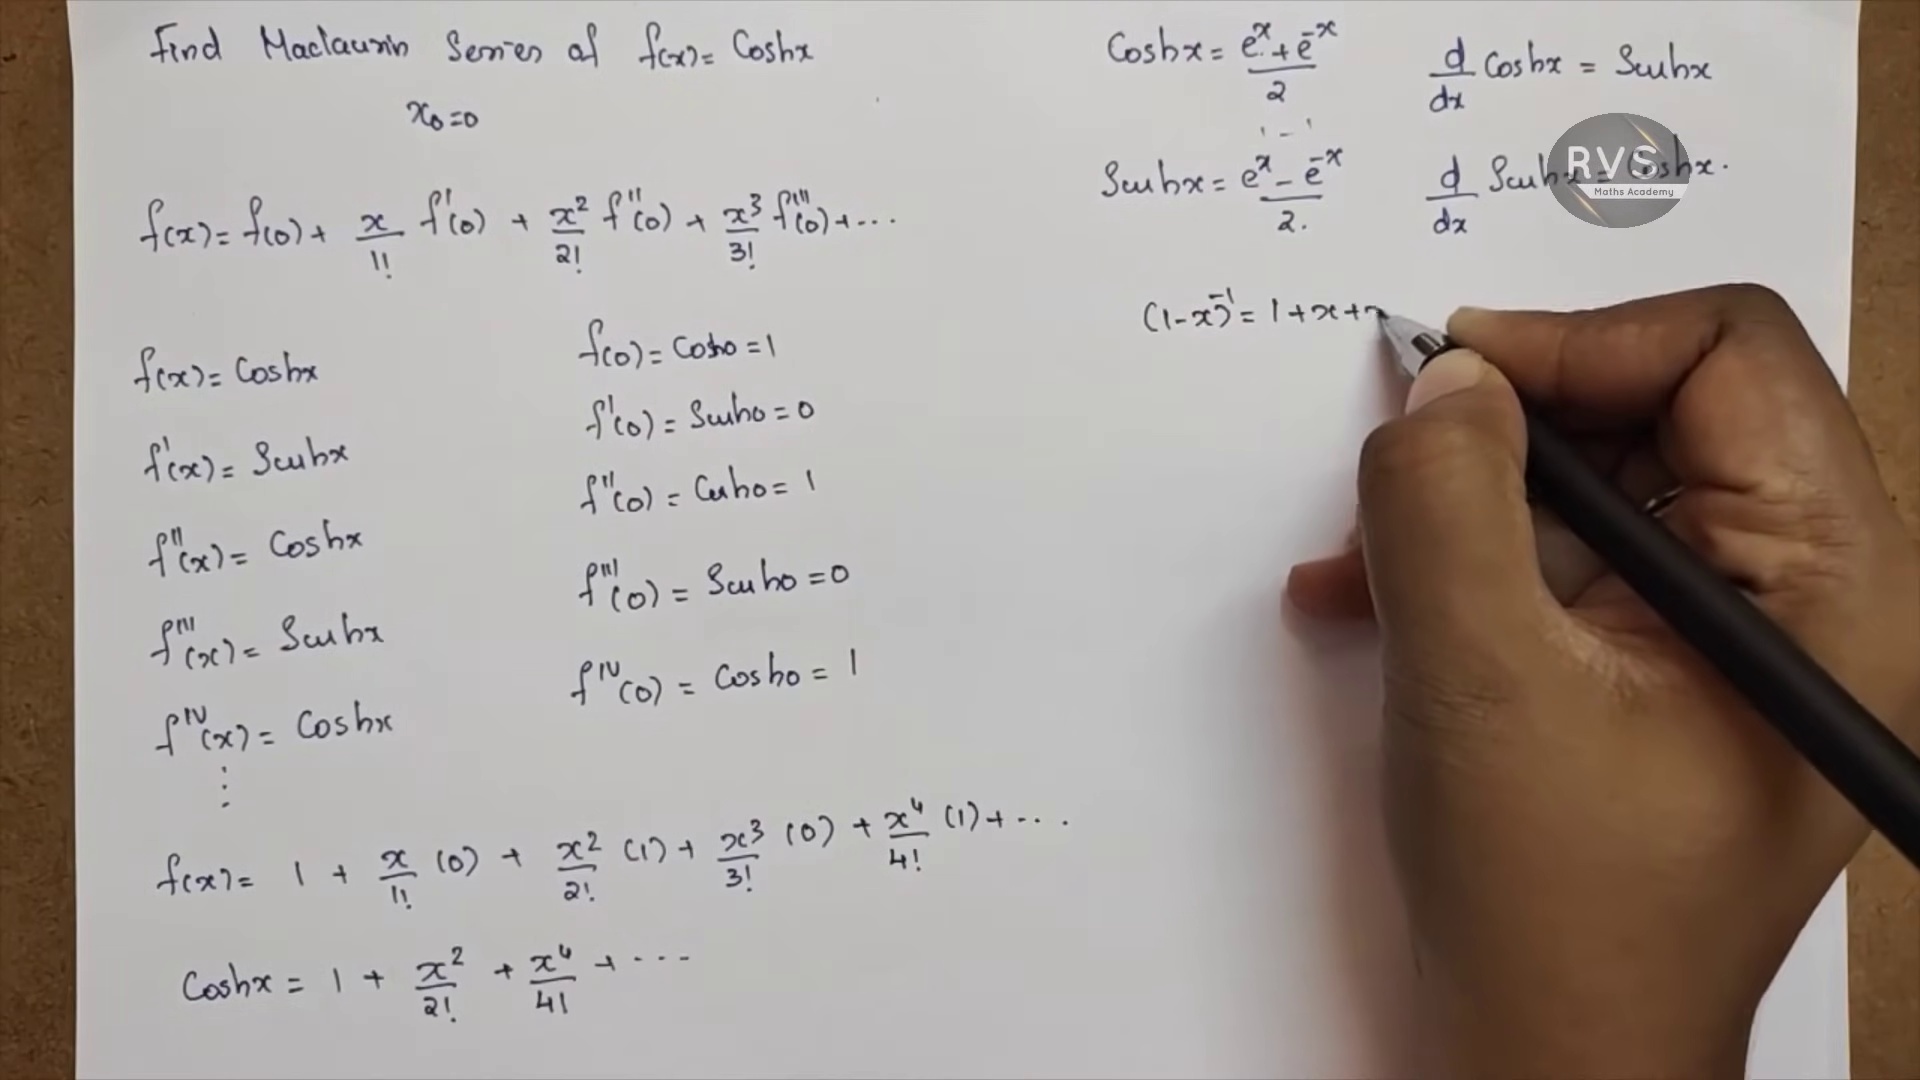 Find Maclaurin Series of f(x) = Coshx
x₀=0
f(x) = f(0) + x/1! f'(0) + x²/2! f''(0) + x³/3! f'''(0) + ...
f(x) = Coshx
f(0) = Cosh0 = 1
f'(x) = Sinhx
f'(0) = Sinh0 = 0
f''(x) = Coshx
f''(0) = Cosh0 = 1
f'''(x) = Sinhx
f'''(0) = Sinh0 = 0
f^IV(x) = Coshx
f^IV(0) = Cosh0 = 1
⋮
f(x) = 1 + x/1! (0) + x²/2! (1) + x³/3! (0) + x⁴/4! (1) + ...
Coshx = 1 + x²/2! + x⁴/4! + ...
Coshx = (e^x + e^-x)/2
d/dx Coshx = Sinhx
1 - 1
Sinhx = (e^x - e^-x)/2.
d/dx Sinhx = Coshx.
RVS
Maths Academy
(1-x)^-1 = 1+x+